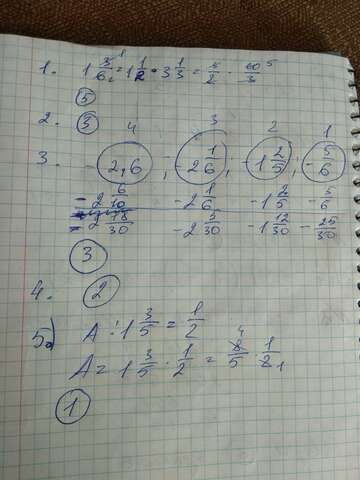 1. 1 3/6 = 1 1/2 · 3 1/3 = 5/2 · 10/3
5
2. 5
4 3 2 1
3. -2,6 ; -2 1/6 ; -1 2/5 ; -5/6
-2 6/10 -2 1/6 -1 2/5 -5/6
-2 18/30 -2 5/30 -1 12/30 -25/30
3
4. 2
5) A : 1 3/5 = 1/2
A = 1 3/5 · 1/2 = 8/5 · 1/2
1